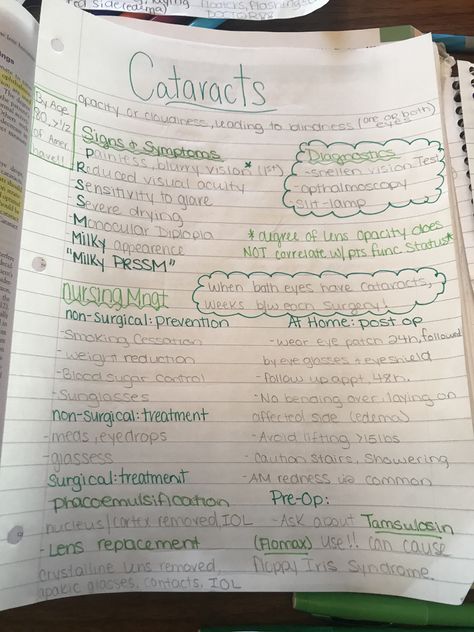 Cataracts
opacity or cloudiness, leading to blindness (one or both)
eyes
By Age
80, >1/2
of Amer.
have!!
Signs & Symptoms
Painless, blurry vision * (1st)
Reduced visual acuity
Sensitivity to glare
Severe drying
Monocular Diplopia
Milky appearence
"Milky PRSSM"
Diagnostics
- Snellen vision Test
- opthalmoscopy
- Slit-lamp
* degree of lens opacity does
NOT correlate w/ pts func. status *
when both eyes have cataracts,
weeks b/w each surgery!
Nursing Mngt
non-surgical: prevention
- Smoking Cessation
- weight reduction
- Blood sugar control
- Sunglasses
non-surgical: treatment
- meds, eyedrops
- glassess
Surgical: treatment
Phacoemulsification
nucleus/cortex removed, IOL
- Lens replacement
crystalline lens removed,
apakic glasses, contacts, IOL
At Home: post op
- wear eye patch 24h, followed
by eye glasses + eyeshield
- follow up appt. 48h.
- No bending over, laying on
affected side (edema)
- Avoid lifting >15lbs
- Caution Stairs, Showering
- AM redness is common
Pre-Op:
- Ask about Tamsulosin
(Flomax) use!! can cause
floppy Iris Syndrome.